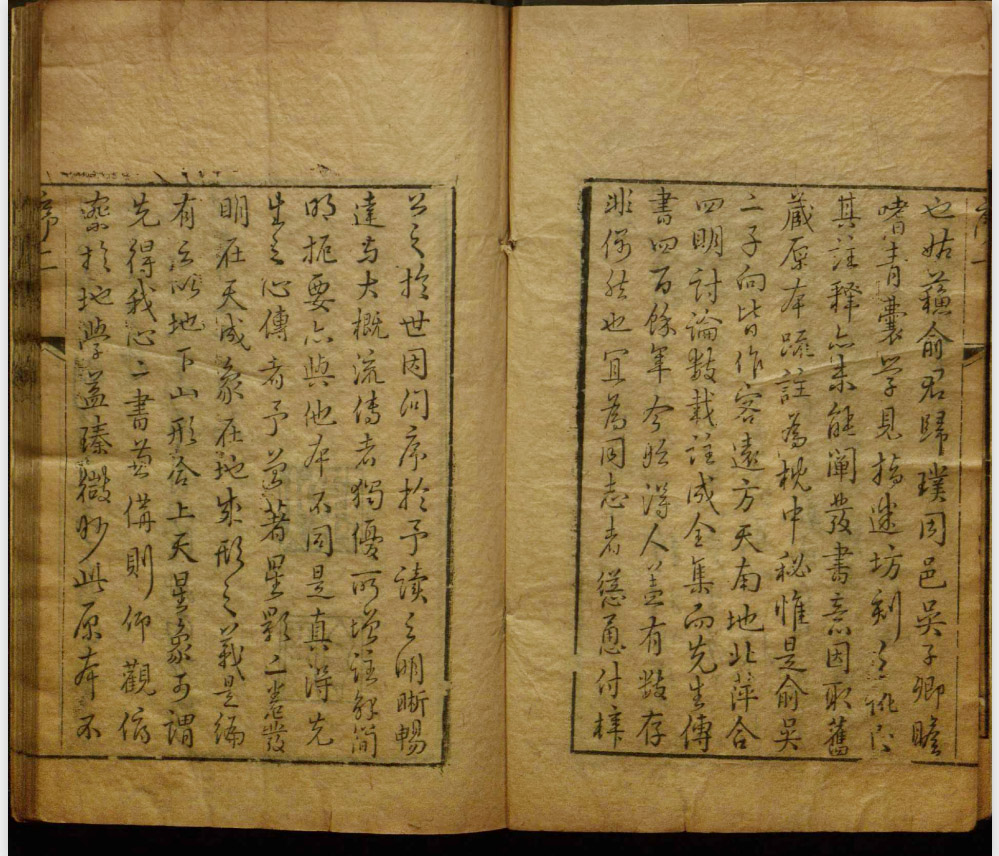 序一
也姑蘇俞君歸璞同邑吳子卿瞻
嗜青囊學見指迷坊刻之訛即
其註釋亦未能闡發書意因取舊
藏原本疏註為枕中秘惟是俞吳
二子向皆作客遠方天南地北萍合
四明討論數載註成全集而先生傳
書四百餘年今始得人蓋有數存
非偶然也宜為同志者慫恿付梓
公之於世因问序於予读之明晰暢
達与大概流傳者獨優所增註解简
明扼要亦與他本不同是真淂先
生之心傳者予曾著星影二卷發
明在天成象在地成形之義是編
有云以地下山形合上天星象可謂
先得我心二書並備則仰觀俯
察於地學蓋臻微妙此原本不
序二